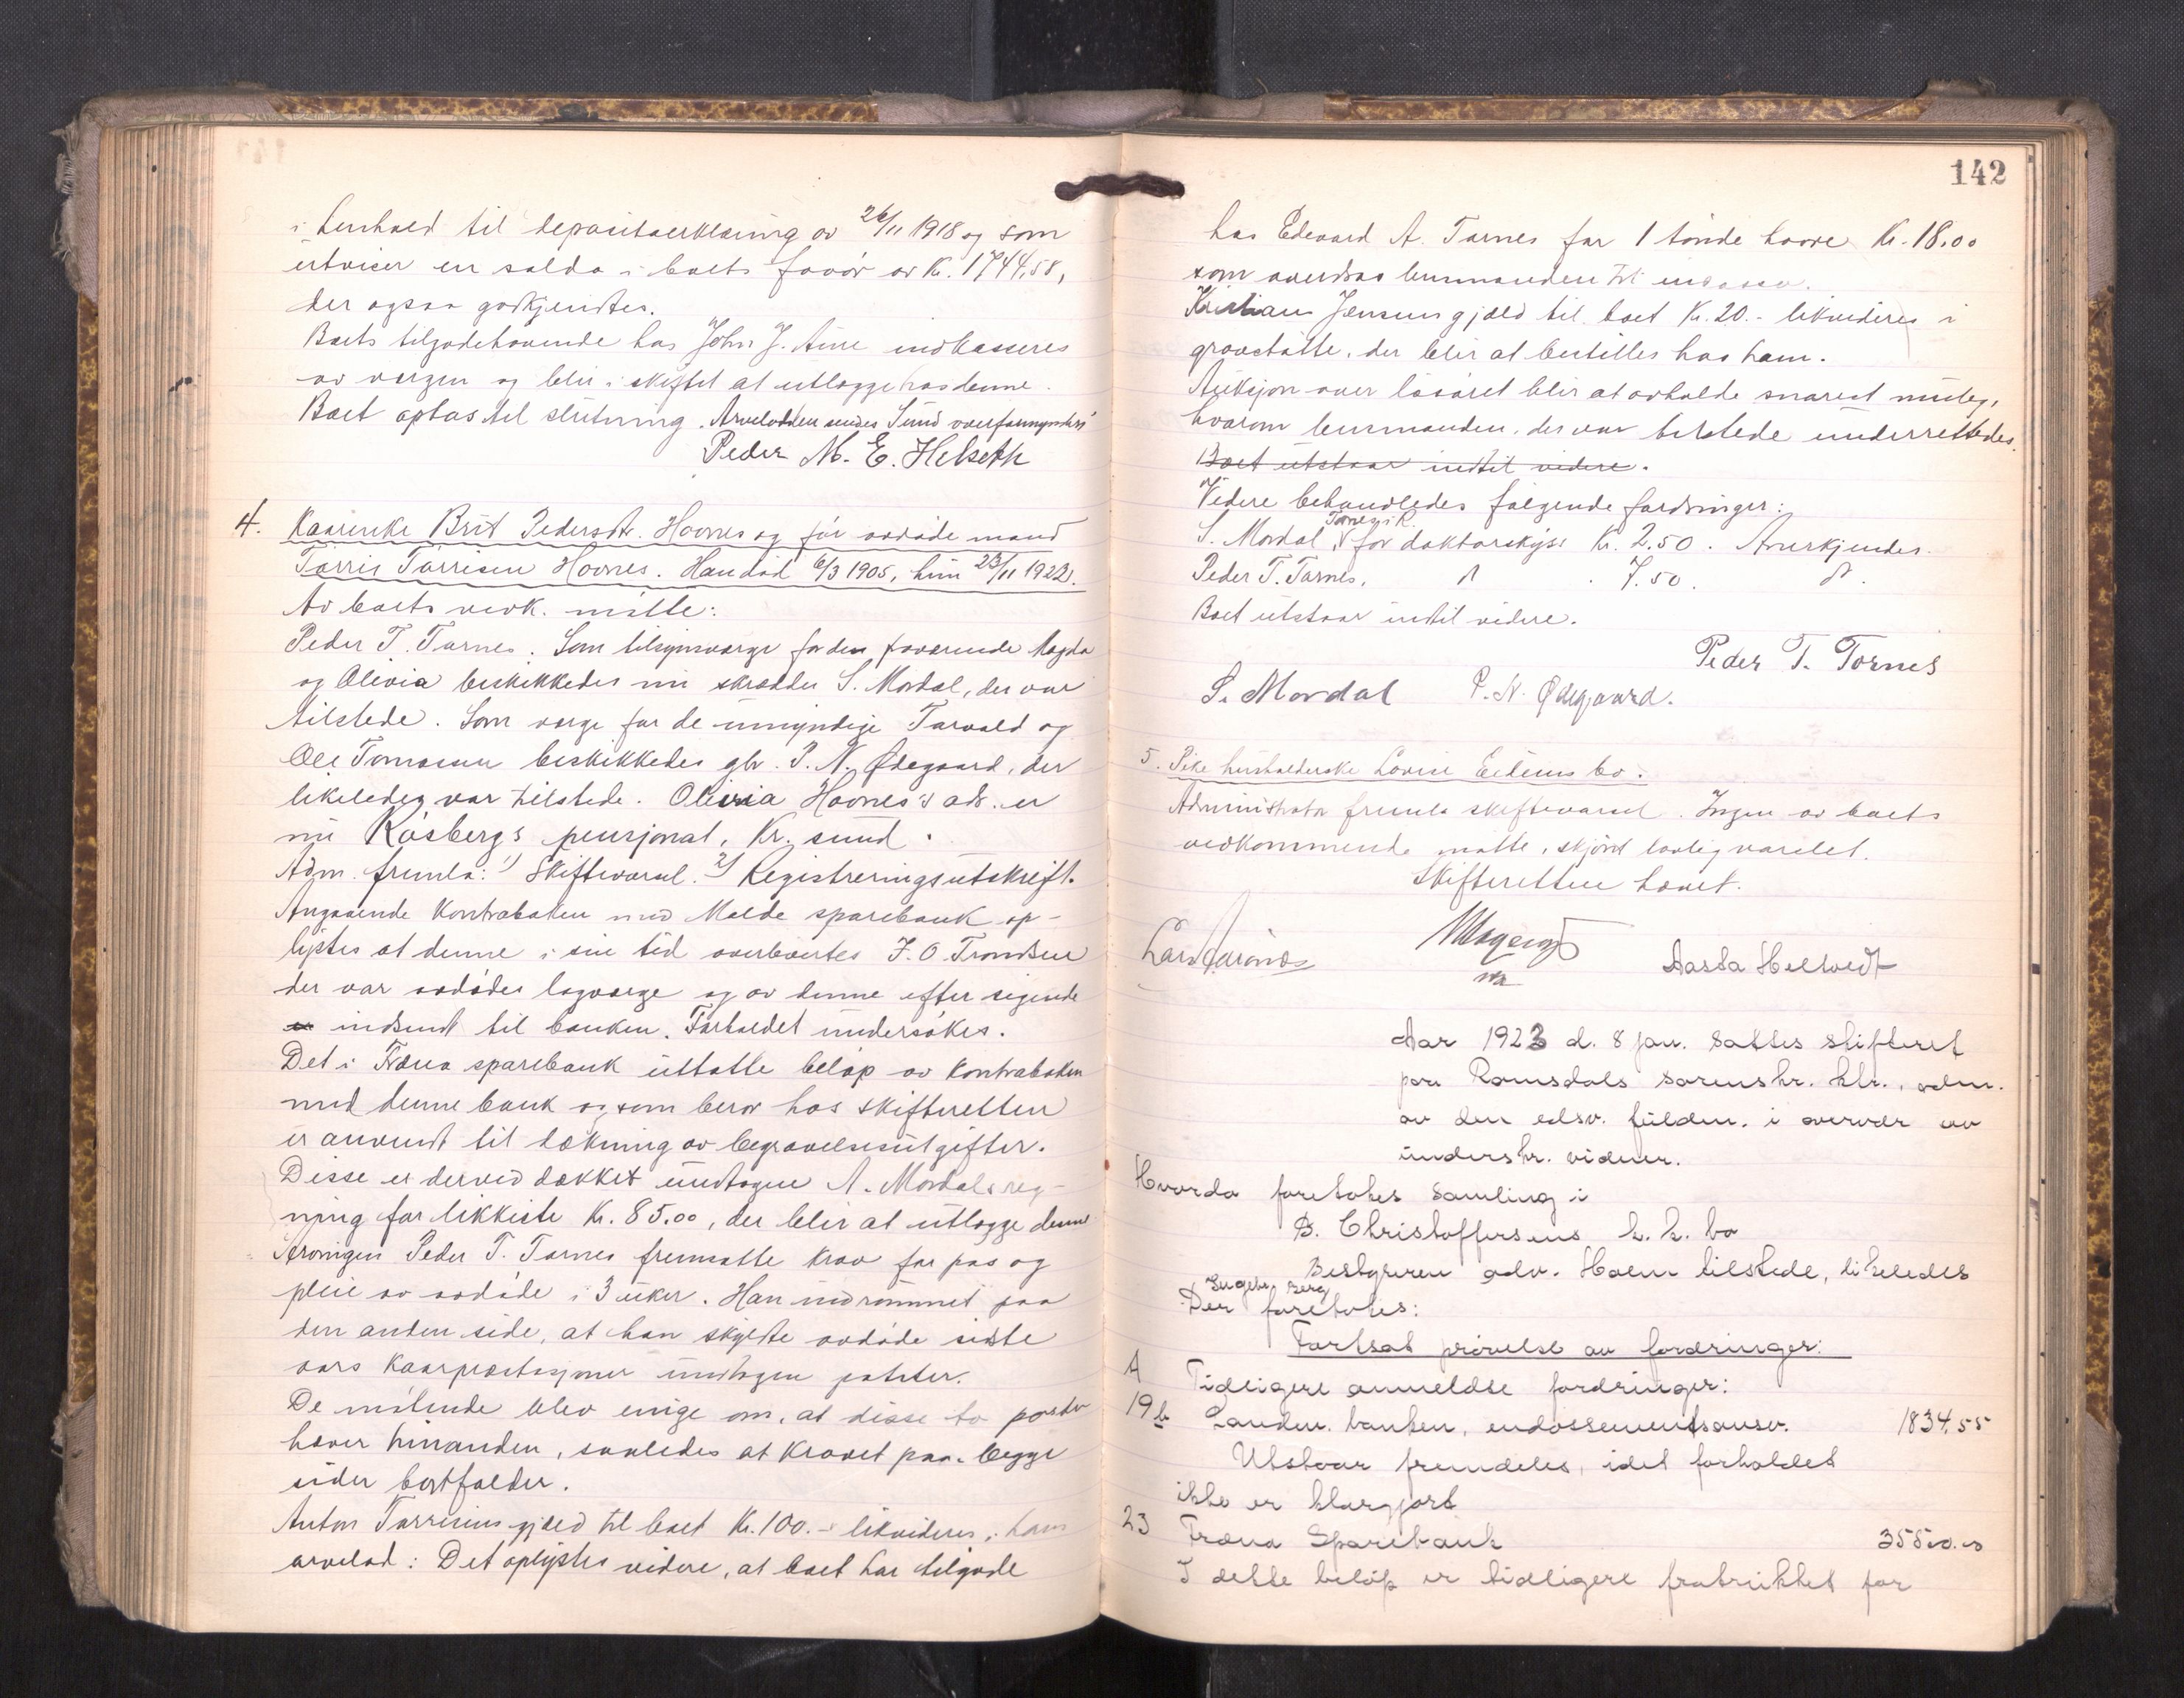 i henhold til depositaerklæring av 26/11 1918 og som
utviser en saldo i boets favør av Kr. 1744,58,
der ogsaa godkjendtes.
Boets tilgodehavende hos John J. Aure indkasseres
av vergen og blir i skiftet at utlægge hos denne.
Boet optas til slutning. Arvelodden sendes Sund overformynderi
Peder M. E. Helseth
4. Kaarenke Brit Pedersdtr. Hovnes og før avdøde mand
Tørris Tørrisen Hovnes. Han død 6/3 1905, hun 23/11 1922.
Av boets vedk. møtte:
Peder T. Tornes. Som tilsynsverge for den fraværende Magda
og Olivia beskikkedes nu skrædder S. Mordal, der var
tilstede. Som verge for de umyndige Torvald og
Ole Tomassen beskikkedes gbr. P. N. Ødegaard, der
likeledes var tilstede. Olivia Hovnes's adr. er
nu Røsbergs pensjonat, Kr. sund.
Adm. fremla: 1) Skiftevarsel. 2) Registreringsutskrift.
Angaaende Kontraboken med Molde sparebank op-
lystes at denne i sin tid overleveredes J. O. Trondsen
der var avdødes lagverge og av denne efter sigende
indsendt til banken. Forholdet undersøkes.
Det i Fræna sparebank uttatte beløp av Kontraboken
med denne bank og som beror hos skifteretten
er anvendt til dækning av begravelsesutgifter.
Disse er derved dækket undtagen A. Mordals reg-
ning for likkiste Kr. 85.00, der blir at utlægge denne
Arvingen Peder T. Tornes fremsatte krav for pas og
pleie av avdøde i 3 uker. Han indrømmet paa
den anden side, at han skyldte avdøde siste
aars kaarprestasjoner undtagen poteter.
De møtende blev enige om, at disse to poster
hæver hinanden, saaledes at kravet paa begge
sider bortfalder.
Anton Tørrisens gjæld til boet Kr. 100.- likvideres i hans
arvelod: Det oplystes videre, at boet har tilgode
142
hos Edevard A. Tornes for 1 tønde havre Kr. 18.00
som overdras lensmanden til incasso.
Kristian Jensens gjæld til boet Kr. 20.- likvideres i
gravstøtte, der blir at bestilles hos ham.
Auksjon over løsøret blir at avholde snarest mulig,
hvorom lensmanden, der var tilstede underrettedes.
Boet utstaar indtil videre.
Videre behandledes følgende fordringer:
S. Mordal, Tornes i R. for doktorskyss Kr. 2.50. Anerkjendes.
Peder T. Tornes, " 7.50. "
Boet utstaar indtil videre.
Peder T. Tornes
S. Mordal P. N. Ødegaard.
5. Pike husholderske Lovise Eidems bo.
Administrator fremla skiftevarsel. Ingen av boets
vedkommende møtte, skjønt lovlig varslet.
Skifteretten hævet.
Aasta Helsvedt
Aar 1923 d. 8 jan. sattes skifteret
paa Romsdals sorenskr. ktr., adm.
av den edsv. fuldm. i overvær av
underskr. vidner.
Hvorda foretokes samling i
B. Christoffersens k. k. bo
Bestyreren adv. Holm tilstede, likeledes
Ingebr. Berg
Der foretokes:
Fortsat prøvelse av fordringer:
A Tidligere anmeldte fordringer:
19b Landm. banken, endossementsansv. 1834.55
Utstaar fremdeles, idet forholdet
ikke er klargjort
23 Fræna Sparebank 35500.00
I dette beløp er tidligere fratrukket for